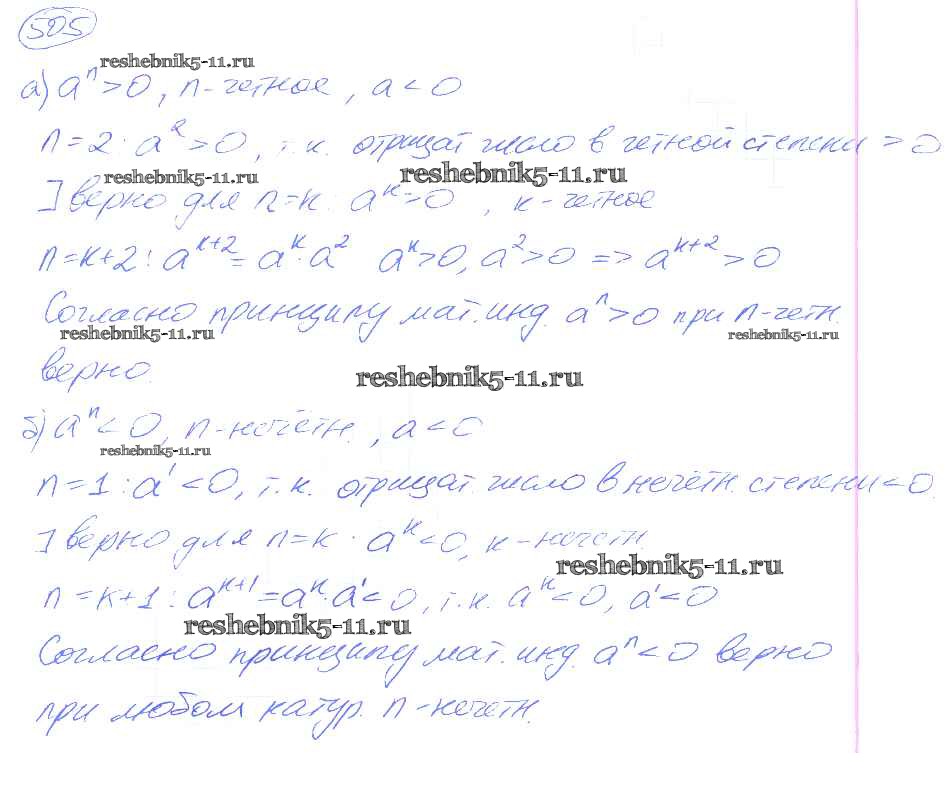 505
reshebnik5-11.ru
а) aⁿ>0, n-четное, a<0
n=2: a²>0, т.к. отрицат число в четной степени >0
reshebnik5-11.ru reshebnik5-11.ru
] верно для n=k: aᵏ>0, k-четное
n=k+2: aᵏ⁺²=aᵏ·a² aᵏ>0, a²>0 => aᵏ⁺²>0
Согласно принципу мат. инд. aⁿ>0 при n-четн.
reshebnik5-11.ru reshebnik5-11.ru
верно.
reshebnik5-11.ru
б) aⁿ<0, n-нечётн., a<0
reshebnik5-11.ru
n=1: a¹<0, т.к. отрицат. число в нечётн. степени <0.
] верно для n=k: aᵏ<0, k-нечетн.
reshebnik5-11.ru
n=k+1: aᵏ⁺¹=aᵏ·a¹<0, т.к. aᵏ<0, a¹<0
reshebnik5-11.ru
Согласно принципу мат. инд. aⁿ<0 верно
при любом натур. n-нечетн.